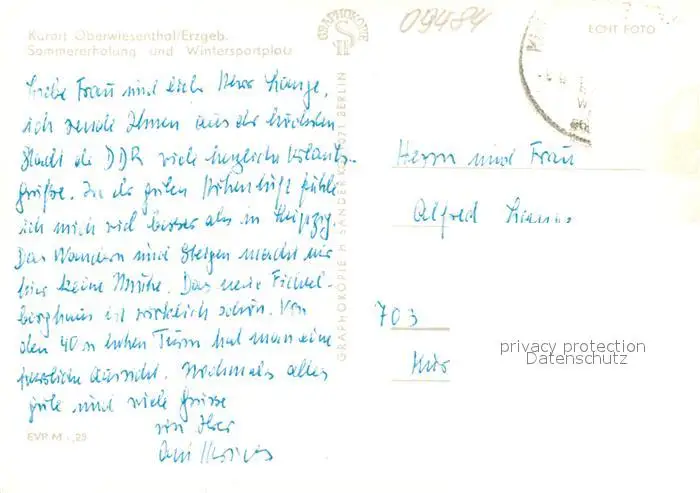 Kurort Oberwiesenthal/Erzgeb.
Sommererholung und Wintersportplatz
Liebe Frau und lieber Herr Lange,
ich sende Ihnen aus der höchsten
Stadt der DDR viele herzliche Urlaubs-
grüße. In der guten Höhenluft fühle
ich mich viel besser als in Leipzig.
Das Wandern und Steigen macht mir
hier keine Mühe. Das neue Fichtel-
berghaus ist wirklich schön. Von
dem 40 m hohen Turm hat man eine
herrliche Aussicht. Nochmals alles
gute und viele Grüsse
von Ihrer
EVP M -,25
GRAPHOKOPIE H. SANDER KG 1071 BERLIN
GRAPHOKOPIE
09484
ECHT FOTO
Herrn und Frau
Alfred
703
privacy protection
Datenschutz